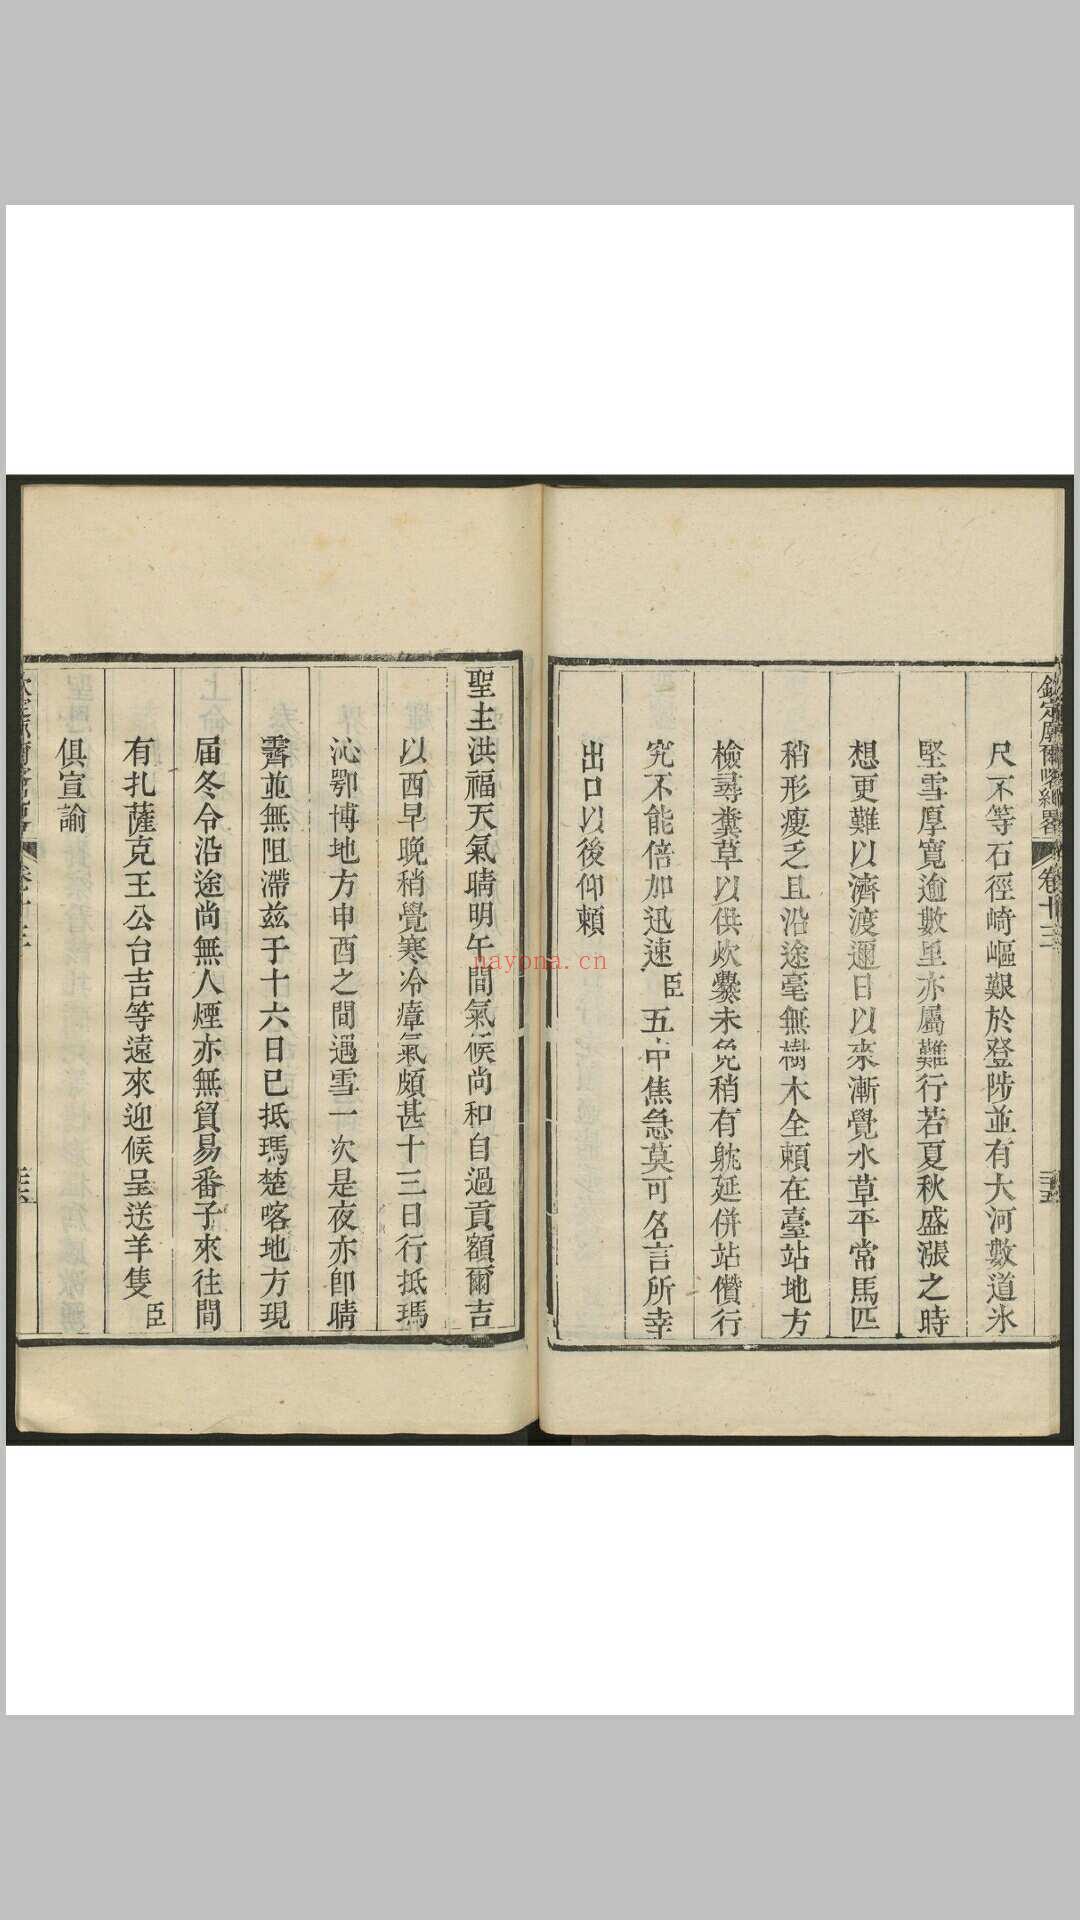 欽定廓爾喀紀畧
卷十三
三五
尺不等石徑崎嶇艱於登陟並有大河數道氷
堅雪厚寬逾數里亦屬難行若夏秋盛漲之時
想更難以濟渡邇日以來漸覺水草平常馬匹
稍形瘦乏且沿途毫無樹木全賴在臺站地方
檢尋糞草以供炊爨未免稍有躭延併站儹行
究不能倍加迅速臣五中焦急莫可名言所幸
出口以後仰賴
聖主洪福天氣晴明午間氣候尚和自過貢額爾吉
以西早晚稍覺寒冷瘴氣頗甚十三日行抵瑪
沁鄂博地方申酉之間遇雪一次是夜亦卽晴
霽並無阻滯兹于十六日已抵瑪楚喀地方現
屆冬令沿途尚無人煙亦無貿易番子來往間
有扎薩克王公台吉等遠來迎候呈送羊隻臣
俱宣諭
nayona.cn